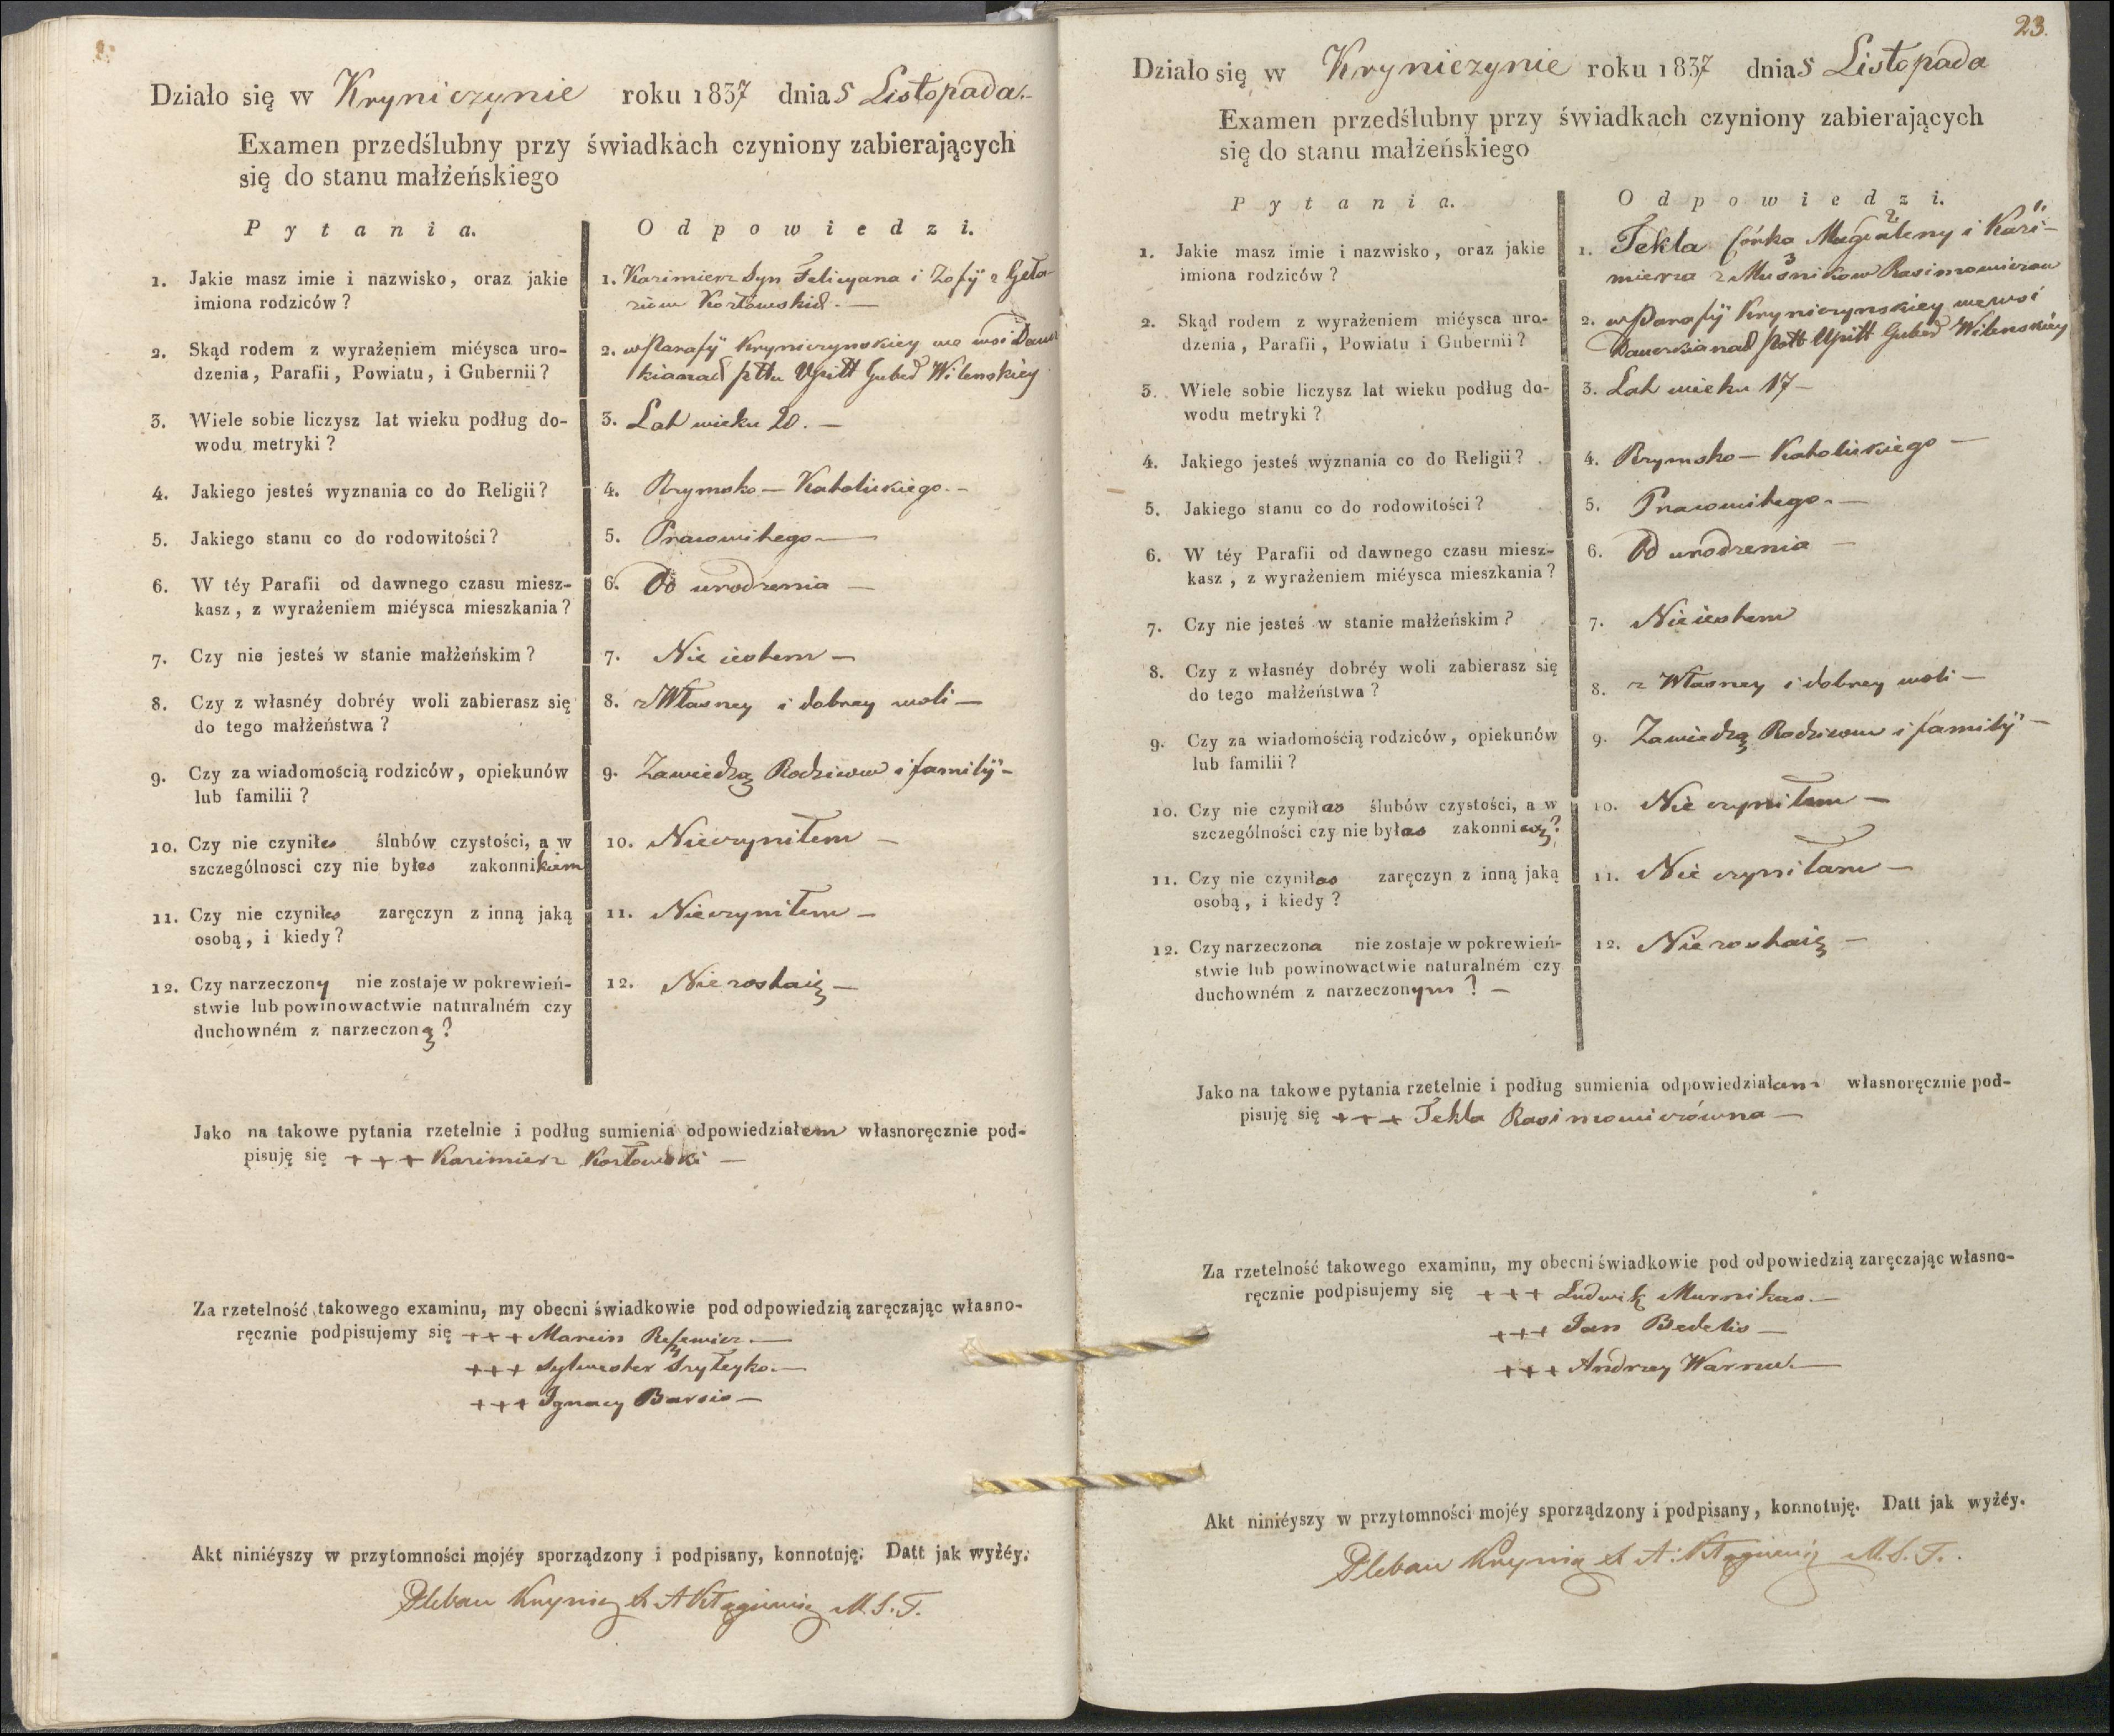 Działo się w Kryniczynie roku 1837 dnia 5 Listopada.
Examen przedślubny przy świadkach czyniony zabierających
się do stanu małżeńskiego
Pytania. Odpowiedzi.
1. Jakie masz imie i nazwisko, oraz jakie
imiona rodziców?
1. Kazimierz Syn Felicyana i Zofij z
Kozłowskich.
2. Skąd rodem z wyrażeniem miéysca uro-
dzenia, Parafii, Powiatu, i Gubernii?
2. w Parafij Kryniczynskiey we wsi
Upitt Guber Wilenskiey
3. Wiele sobie liczysz lat wieku podług do-
wodu metryki?
3. Lat wieku 20. —
4. Jakiego jesteś wyznania co do Religii?
4. Rzymsko — Katolickiego. —
5. Jakiego stanu co do rodowitości?
5. Pracowitego —
6. W téy Parafii od dawnego czasu miesz-
kasz, z wyrażeniem miéysca mieszkania?
6. Od urodzenia —
7. Czy nie jesteś w stanie małżeńskim?
7. Nie iestem —
8. Czy z własnéy dobréy woli zabierasz się
do tego małżeństwa?
8. z Własney i dobrey woli —
9. Czy za wiadomością rodziców, opiekunów
lub familii?
9. Zawiedzą Rodzicow i familij —
10. Czy nie czyniłes ślubów czystości, a w
szczególnosci czy nie byłes zakonnikiem
10. Nieczyniłem —
11. Czy nie czyniłes zaręczyn z inną jaką
osobą, i kiedy?
11. Nieczyniłem —
12. Czy narzeczony nie zostaje w pokrewień-
stwie lub powinowactwie naturalném czy
duchowném z narzeczoną?
12. Niezostaię —
Jako na takowe pytania rzetelnie i podług sumienia odpowiedziałem własnoręcznie pod-
pisuję się +++ Kazimierz Kozłowski —
Za rzetelność takowego examinu, my obecni świadkowie pod odpowiedzią zaręczając własno-
ręcznie podpisujemy się +++ Marcin
+++ Sylwester Szyłeyko. —
+++ Ignacy Barsis —
Akt niniéyszy w przytomności mojéy sporządzony i podpisany, konnotuję. Datt jak wyżéy.
Pleban M. S. T.
23.
Działo się w Kryniczynie roku 1837 dnia 5 Listopada
Examen przedślubny przy świadkach czyniony zabierających
się do stanu małżeńskiego
Pytania. Odpowiedzi.
1. Jakie masz imie i nazwisko, oraz jakie
imiona rodziców?
1. Tekla Córka Magdaleny i Kazi-
mierza z Rasimowiczow
2. Skąd rodem z wyrażeniem miéysca uro-
dzenia, Parafii, Powiatu i Gubernii?
2. w Parafij Kryniczynskiey we wsi
Upitt Guber Wilenskiey
3. Wiele sobie liczysz lat wieku podług do-
wodu metryki?
3. Lat wieku 17 —
4. Jakiego jesteś wyznania co do Religii?
4. Rzymsko — Katolickiego —
5. Jakiego stanu co do rodowitości?
5. Pracowitego. —
6. W téy Parafii od dawnego czasu miesz-
kasz, z wyrażeniem miéysca mieszkania?
6. Od urodzenia —
7. Czy nie jesteś w stanie małżeńskim?
7. Nieiestem
8. Czy z własnéy dobréy woli zabierasz się
do tego małżeństwa?
8. z Własney i dobrey woli —
9. Czy za wiadomością rodziców, opiekunów
lub familii?
9. Zawiedzą Rodzicow i familij —
10. Czy nie czyniłas ślubów czystości, a w
szczególności czy nie byłas zakonnicą?
10. Nie czyniłam —
11. Czy nie czyniłas zaręczyn z inną jaką
osobą, i kiedy?
11. Nie czyniłam —
12. Czy narzeczona nie zostaje w pokrewień-
stwie lub powinowactwie naturalném czy
duchowném z narzeczonym? —
12. Niezostaię —
Jako na takowe pytania rzetelnie i podług sumienia odpowiedziałam własnoręcznie pod-
pisuję się +++ Tekla Rasimowiczówna —
Za rzetelność takowego examinu, my obecni świadkowie pod odpowiedzią zaręczając własno-
ręcznie podpisujemy się +++ Ludwik Murnikas. —
+++ Jan Bedelis —
+++ Andrzey
Akt niniéyszy w przytomności mojéy sporządzony i podpisany, konnotuję. Datt jak wyżéy.
Pleban M. S. T.